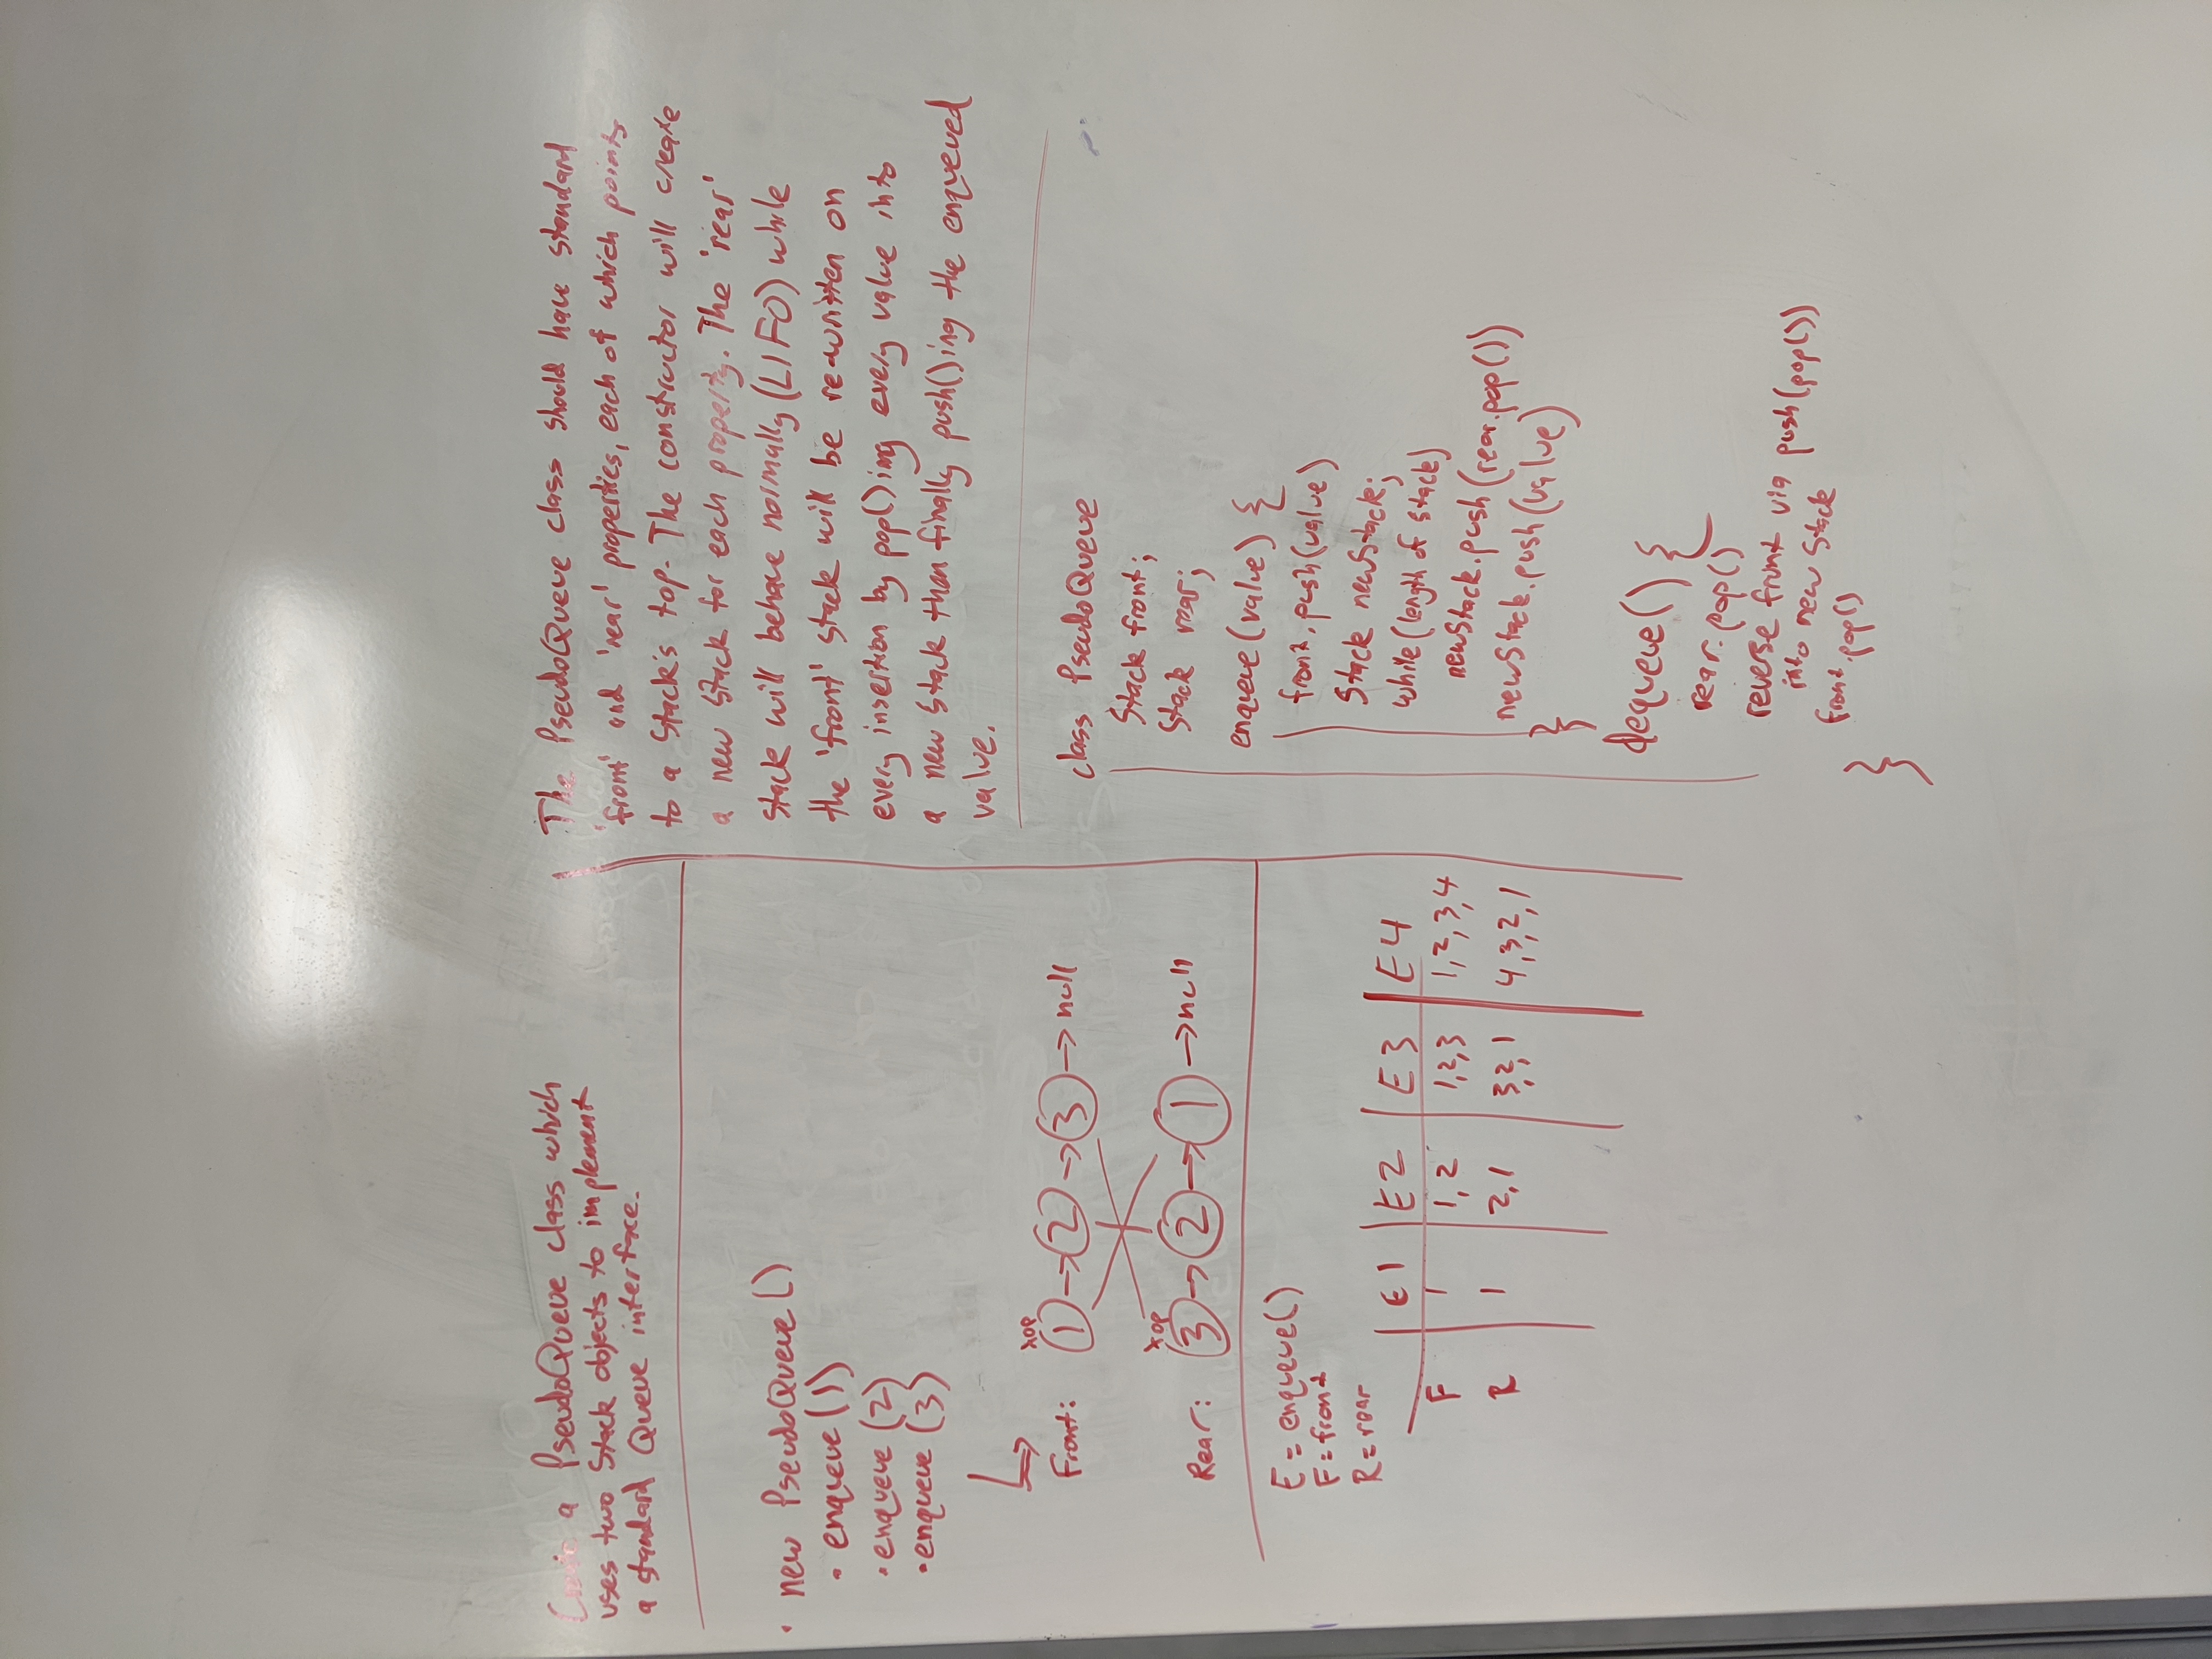 Create a PseudoQueue class which
uses two Stack objects to implement
a standard Queue interface.
• new PseudoQueue()
• enqueue(1)
• enqueue(2)
• enqueue(3)
Front:
top
1 → 2 → 3 → null
Rear:
top
3 → 2 → 1 → null
E = enqueue()
F = front
R = rear
E1 E2 E3 E4
F 1 1,2 1,2,3 1,2,3,4
R 1 2,1 3,2,1 4,3,2,1
The PseudoQueue class should have standard
'front' and 'rear' properties, each of which points
to a Stack's top. The constructor will create
a new Stack for each property. The 'rear'
stack will behave normally (LIFO) while
the 'front' stack will be re-written on
every insertion by pop()ing every value into
a new Stack then finally push()ing the enqueued
value.
class PseudoQueue
Stack front;
Stack rear;
enqueue(value) {
front.push(value)
Stack newStack;
while(length of stack)
newStack.push(rear.pop())
newStack.push(value)
}
dequeue() {
rear.pop()
reverse front via push(pop())
into new Stack
front.pop()
}